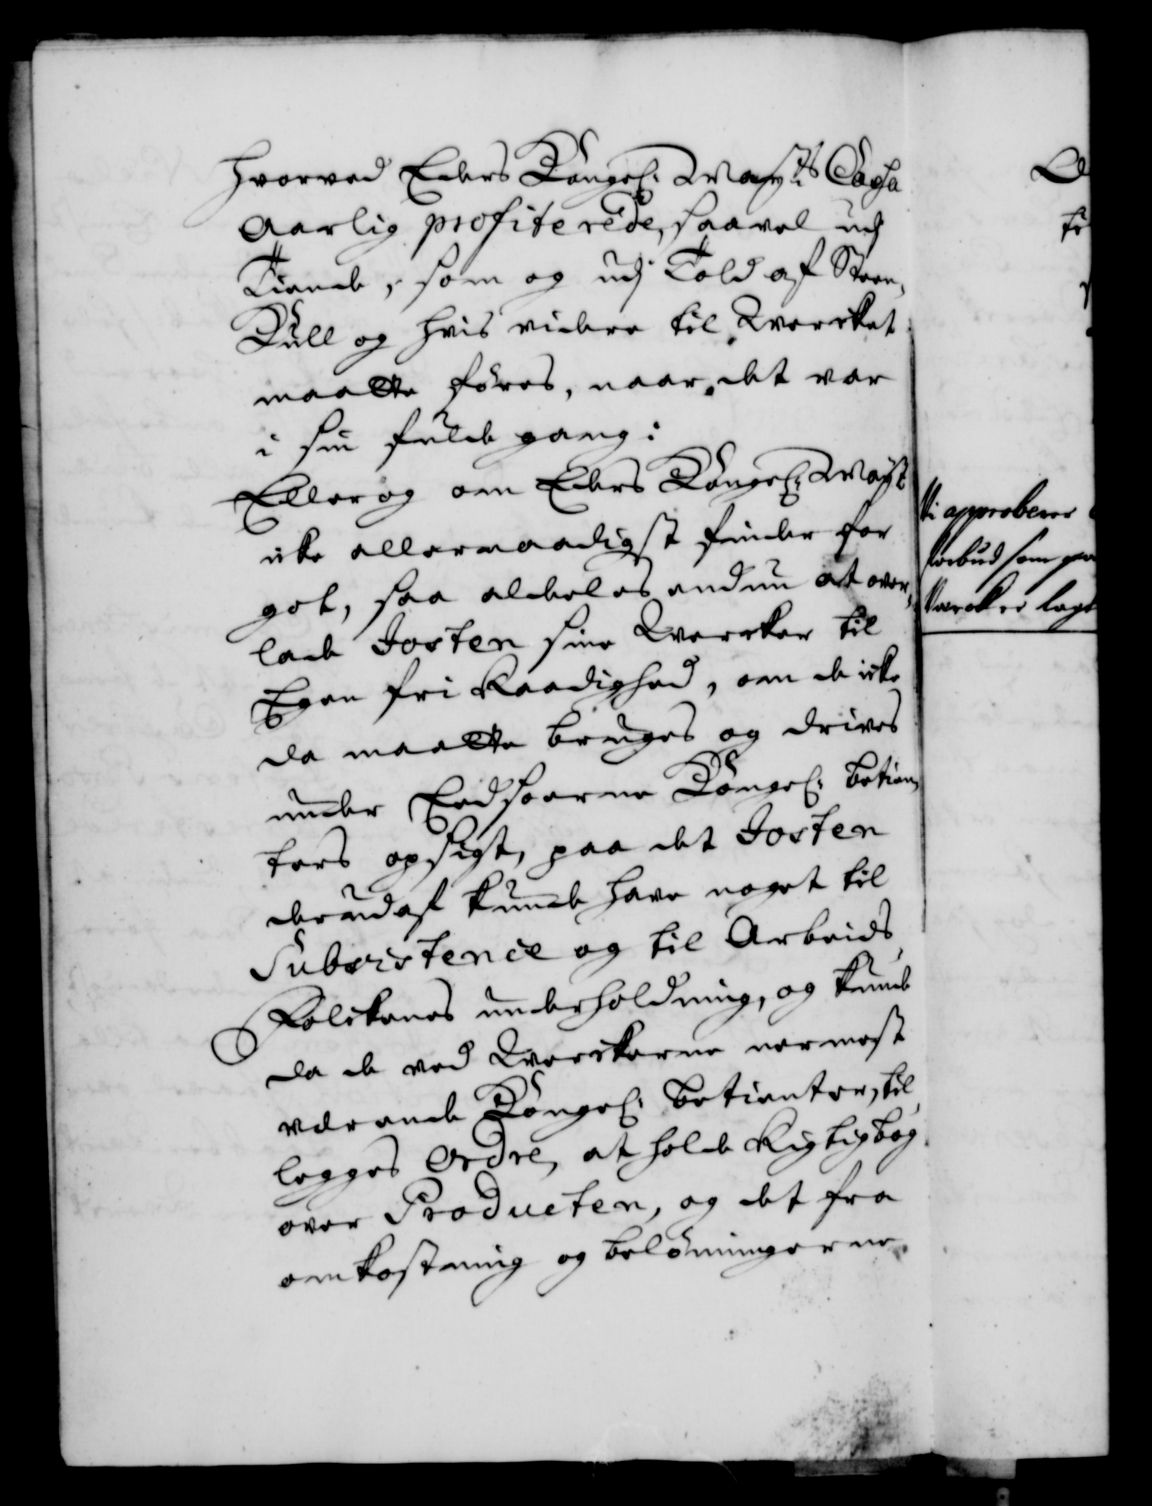 hvorved Eders Kongel: Mayts Cassa
aarlig profiterede, saavel udj
Tiende, som og udj Told af Steen,
Kull og hvis videre til Wercket
maatte føres, naar det var
i sin fulde gang:
Eller og om Eders Kongel: Mayt
icke allernaadigst finder for
got, saa aldeles endnu at over,
lade Josten sine Wercker til
Egen fri Raadighed, om de icke
da maatte bruges og drives
under Kongel: betien,
ters opsigt, paa det Josten
derudaf kunde have noget til
Subsistence og til Arbeids
Folckenes underholdning, og kunde
da de ved Werckerne nermest
værende Kongel: betienter, til,
legges Ordre, at holde Rigtig bog
over Producten, og det fra
omkostning og belønningerne
Vi approberer
forbud som paa
Værcker lagt